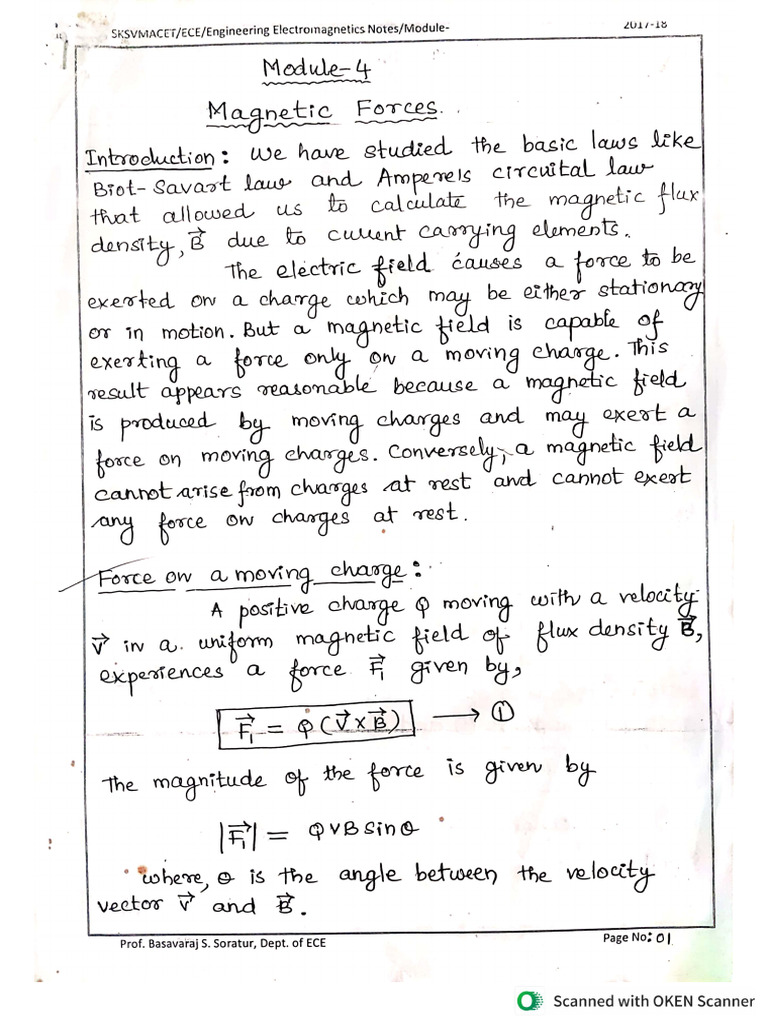 SKSVMACET/ECE/Engineering Electromagnetics Notes/Module-
2017-18
Module-4
Magnetic Forces.
Introduction: We have studied the basic laws like
Biot-Savart law and Ampere's circuital law
that allowed us to calculate the magnetic flux
density, B⃗ due to current carrying elements.
The electric field causes a force to be
exerted on a charge which may be either stationary
or in motion. But a magnetic field is capable of
exerting a force only on a moving charge. This
result appears reasonable because a magnetic field
is produced by moving charges and may exert a
force on moving charges. Conversely, a magnetic field
cannot arise from charges at rest and cannot exert
any force on charges at rest.
Force on a moving charge:
A positive charge Q moving with a velocity
V⃗ in a uniform magnetic field of flux density B⃗,
experiences a force F⃗₁ given by,
F⃗₁ = Q(V⃗×B⃗) → ①
The magnitude of the force is given by
|F⃗₁| = QVB sinθ
where, θ is the angle between the velocity
vector V⃗ and B⃗.
Prof. Basavaraj S. Soratur, Dept. of ECE
Page No: 01
Scanned with OKEN Scanner